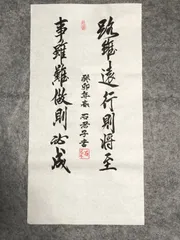 路雖遠行則將至
事雖難做則必成
癸卯年 石君子書